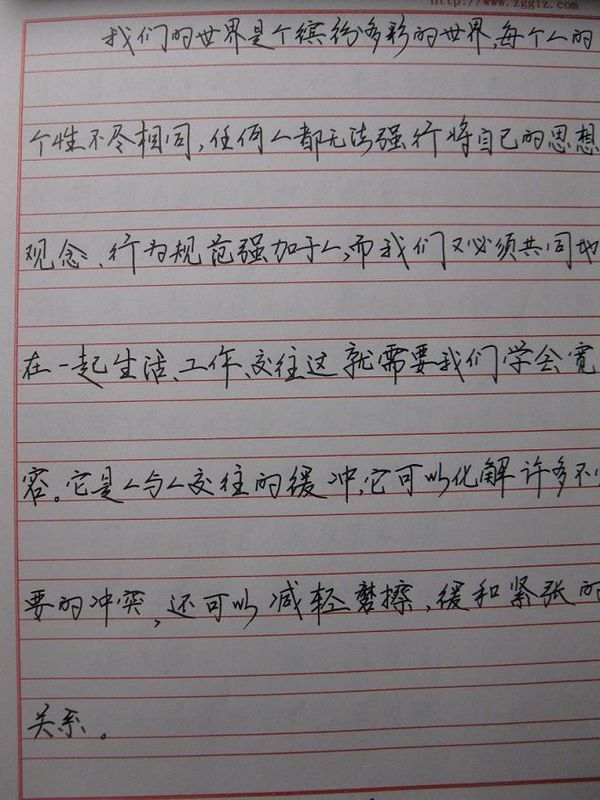 http://www.zggjz.com
我们的世界是个缤纷多彩的世界,每个人的
个性不尽相同,任何人都无法强行将自己的思想
观念、行为规范强加于人,而我们又必须共同地
在一起生活、工作、交往这就需要我们学会宽
容。它是人与人交往的缓冲,它可以化解许多不
要的冲突,还可以减轻磨擦,缓和紧张的
关系。